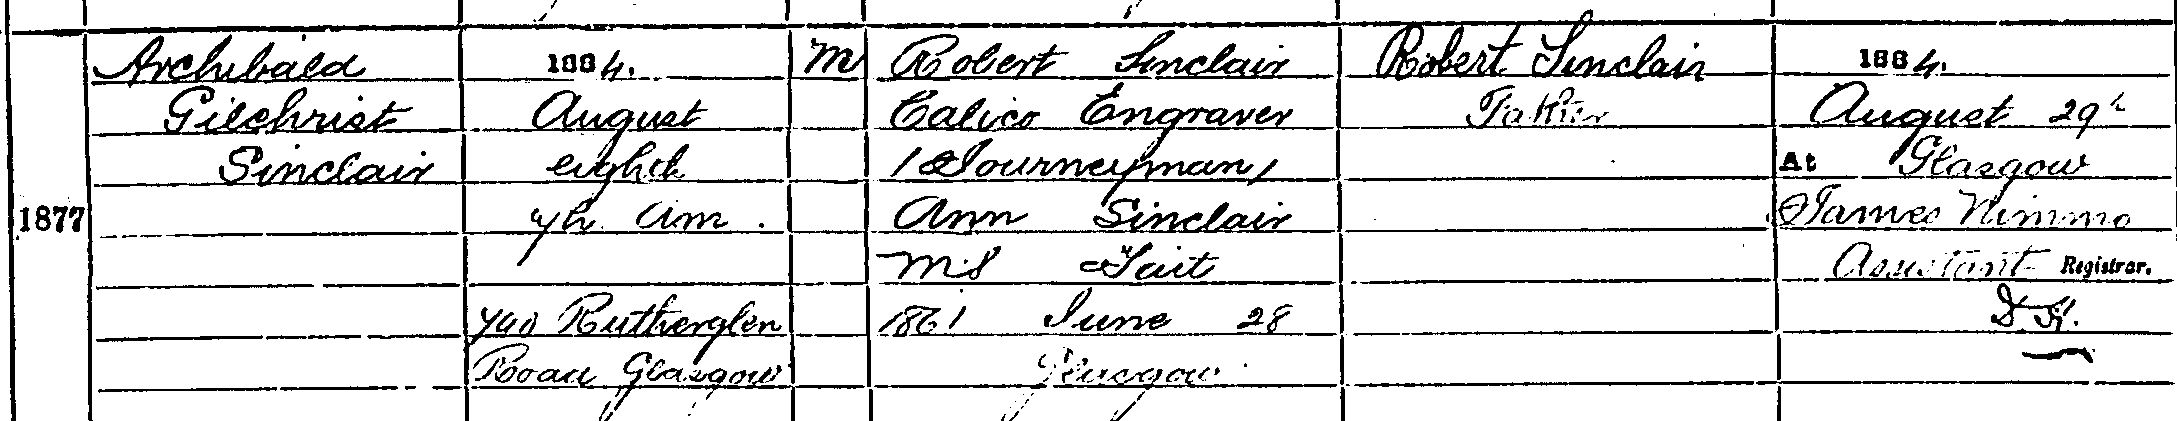 1877
Archibald
Gilchrist
Sinclair
1884.
August
eighth
4h am.
Rutherglen
Road Glasgow
M
Robert Sinclair
Calico Engraver
(Journeyman)
Ann Sinclair
M.S Tait
1861 June 28
Glasgow
Robert Sinclair
Father
1884.
August 29th
At Glasgow
James Nimmo
Assistant Registrar.